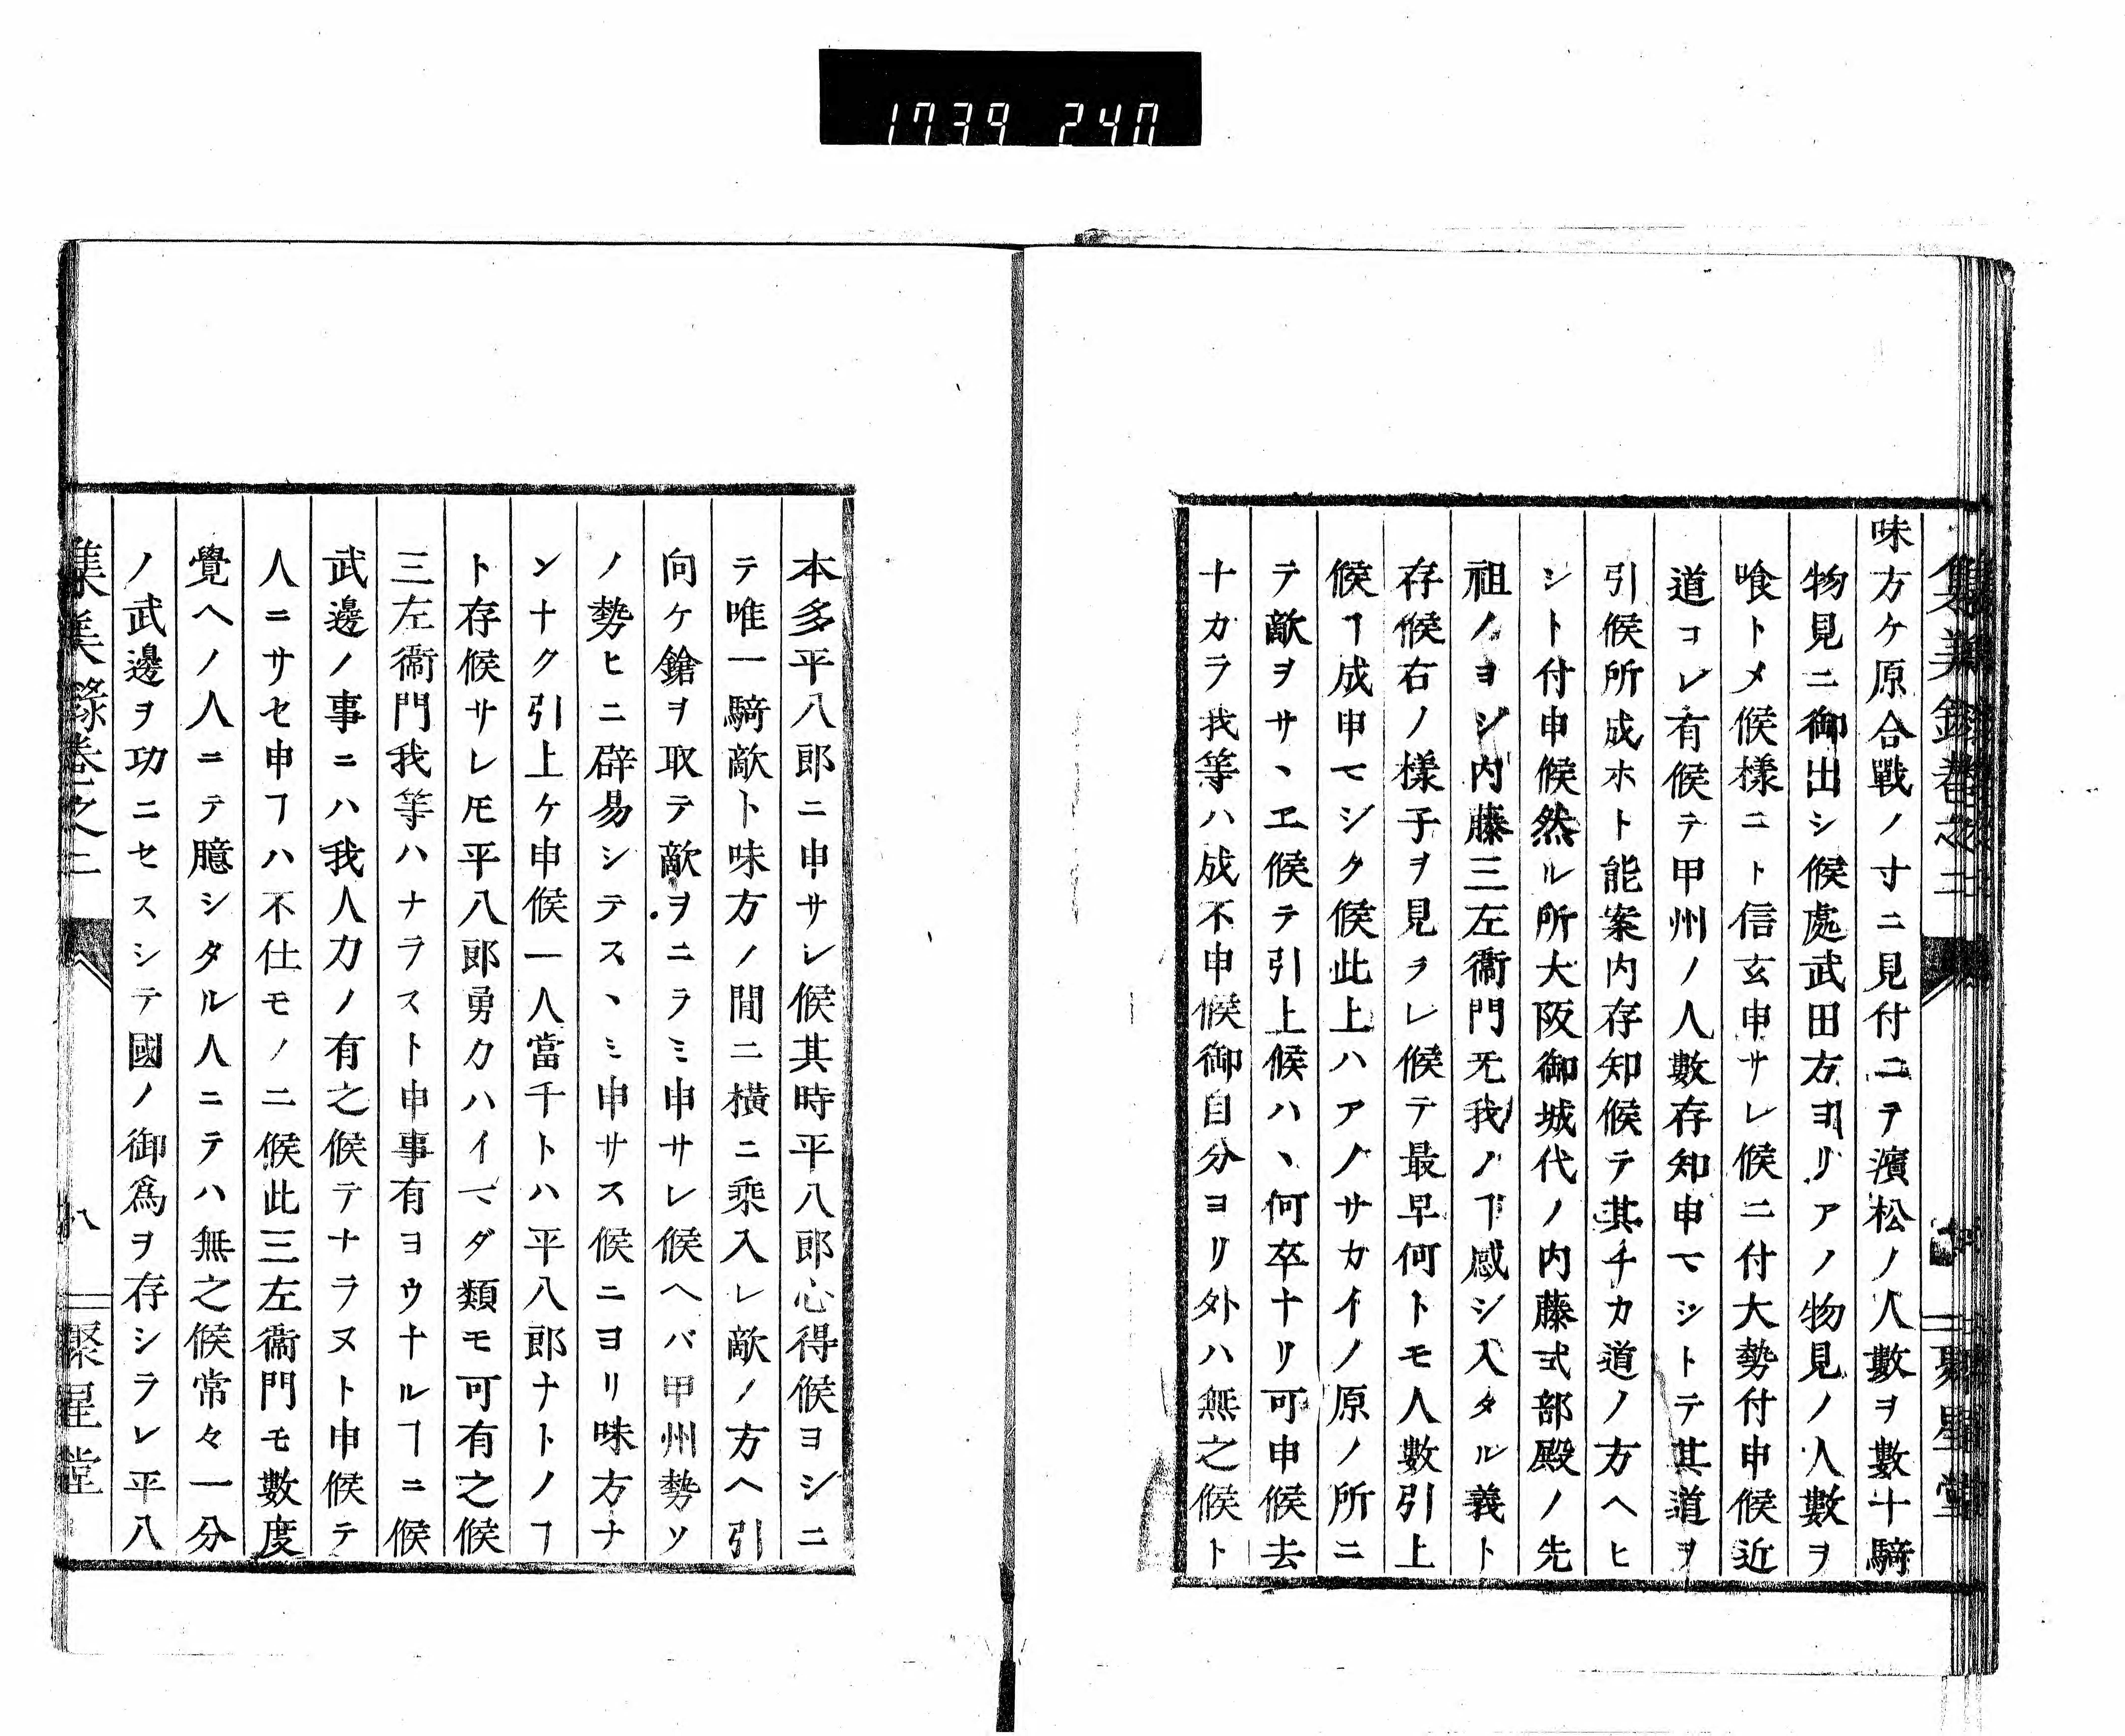 1739 240
集義錄卷之二
味方ケ原合戰ノ寸ニ見付ニテ濱松ノ人數ヲ數十騎
物見ニ御出シ候處武田方ヨリアノ物見ノ人數ヲ
喰トメ候樣ニト信玄申サレ候ニ付大勢付申候近
道コレ有候テ甲州ノ人數存知申マシトテ其道ヲ
引候所成ホト能案内存知候テ其チカ道ノ方ヘヒ
シト付申候然ル所大阪御城代ノ内藤式部殿ノ先
祖ノヨシ内藤三左衞門无我ノヿ感シ入タル義ト
存候右ノ樣子ヲ見ヲレ候テ最早何トモ人數引上
候ヿ成申マシク候此上ハアノサカイノ原ノ所ニ
テ敵ヲサヽエ候テ引上候ハヽ何卒ナリ可申候去
ナカラ我等ハ成不申候御自分ヨリ外ハ無之候ト
聚星堂
本多平八郎ニ申サレ候其時平八郎心得候ヨシニ
テ唯一騎敵ト味方ノ間ニ橫ニ乘入レ敵ノ方ヘ引
向ケ鎗ヲ取テ敵ヲニラミ申サレ候ヘバ甲州勢ソ
ノ勢ヒニ辟易シテスヽミ申サス候ニヨリ味方ナ
ンナク引上ケ申候一人當千トハ平八郎ナトノヿ
ト存候サレ𪜈平八郎勇力ハイマダ類モ可有之候
三左衞門我等ハナラスト申事有ヨウナルヿニ候
武邊ノ事ニハ我人力ノ有之候テナラヌト申候テ
人ニサセ申ヿハ不仕モノニ候此三左衞門モ數度
覺ヘノ人ニテ臆シタル人ニテハ無之候常々一分
ノ武邊ヲ功ニセスシテ國ノ御爲ヲ存シラレ平八
集義錄卷之二
八
聚星堂